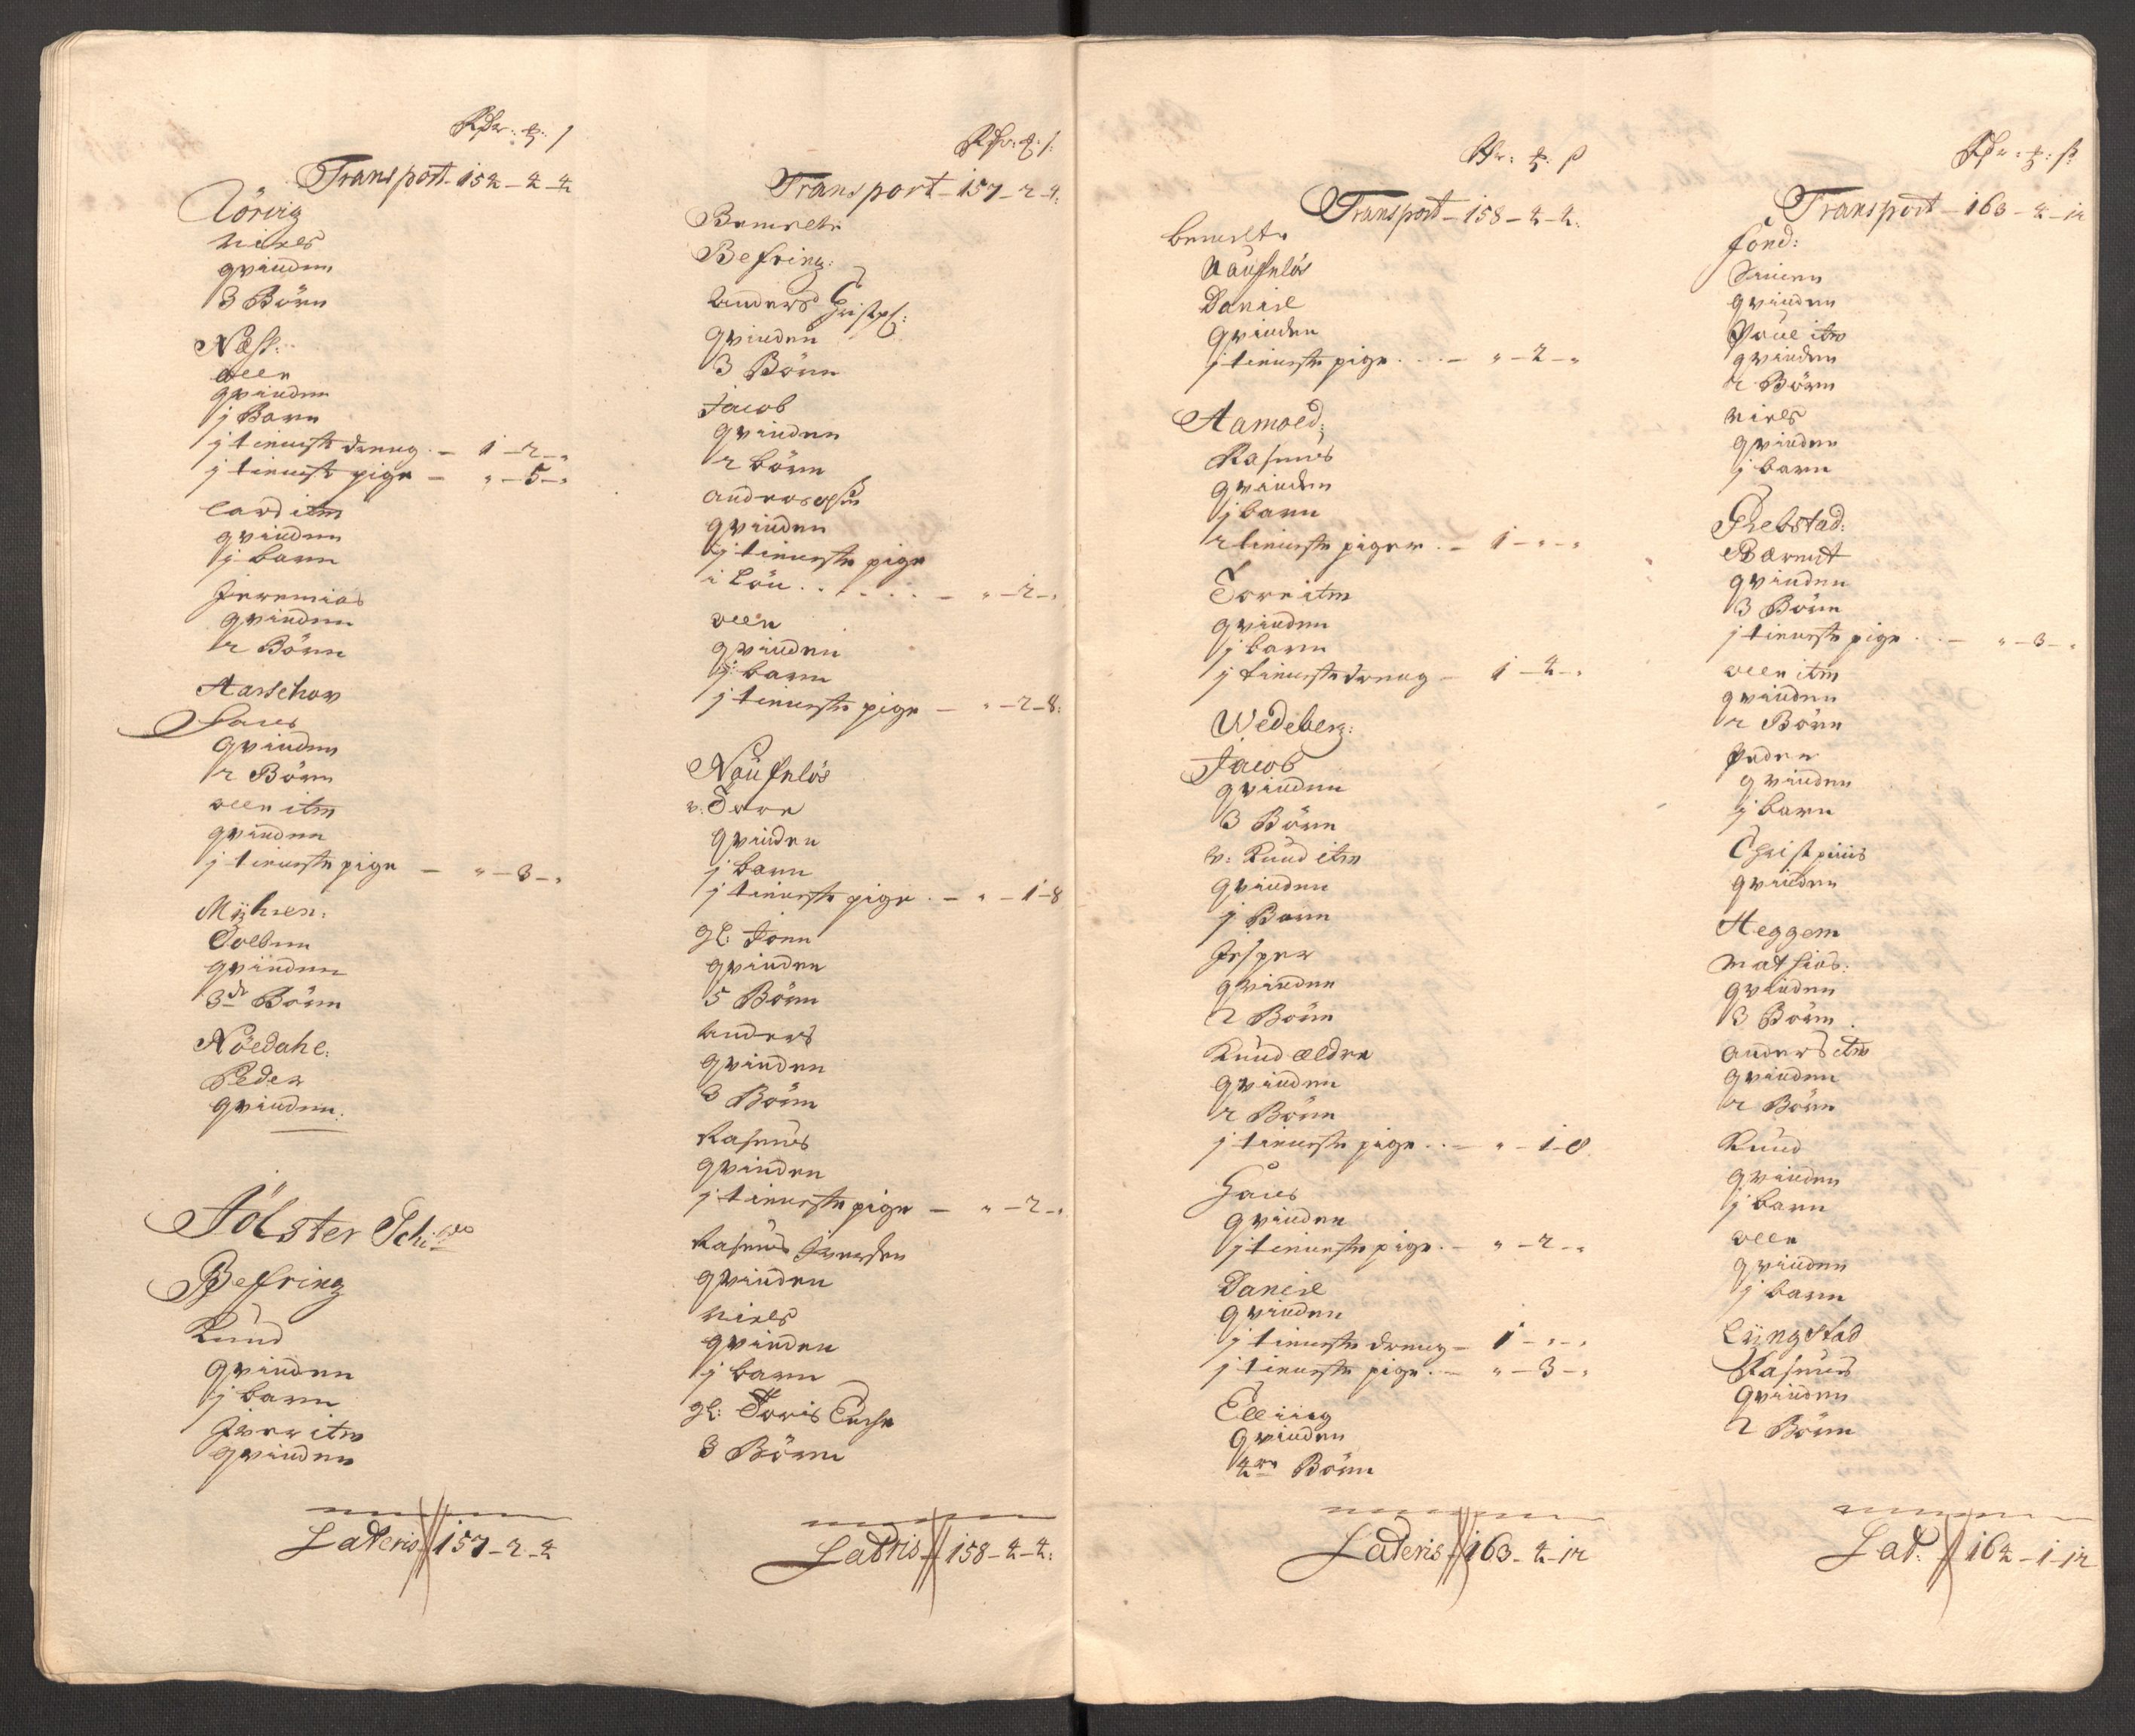 Rdr: ₻: s
Transport - 152 - 4 - 4
Törvig
Niels
qvinden
3 Börn
Næss:
Olle
qvinden
j Barn
j tieneste dreng - 1 - 2 - "
j tieneste pige - " - 5 - "
Lard itm
qvinden
j barn
Jeremias
qvinden
2 Börn
Aarschow
Hans
qvinden
2 Börn
Olle itm
qvinden
j tieneste pige - " - 3 - "
Myhren:
Colben
qvinden
3de Börn
Nöedahl:
Peder
qvinden:
Jölster Schibr
Befring
Knud
qvinden
j barn
Iver itm
qvinden
Lateris 157 - 2 - 4
Rdr: ₻: s:
Transport - 157 - 2 - 4:
Bemelte
Befring:
Anders Christophs:
qvinden
3 Börn
Jacob
qvinden
2 börn
Anders
qvinden
j tieneste pige
i Lön . . . . . . - " - 2 - "
Olle
qvinden
j barn
j tieneste pige - " - 2 - 8:
Nøufnløs
v. Tore
qvinden
j barn
j tieneste pige . - " - 1 - 8
gl: Jonn
qvinden
5 Börn
Anders
qvinden
3 Börn
Rasmus
qvinden
j tieneste pige - " - 2 - "
Rasmus Iversen
qvinden
Niels
qvinden
j barn
gl: Joris Enche
3 Börn
Lateris 158 - 4 - 4:
Rdr: ₻: s
Transport - 158 - 4 - 4:
bemelte
Nøufnløs
Daniel
qvinden
j tieneste pige . . . - " - 2 - "
Aamoed:
Rasmus
qvinden
j barn
2 tieneste piger . - 1 - " - "
Tore itm
qvinden
j barn
j tieneste dreng - 1 - 4 - "
Wedeberg:
Jacob
qvinden
3 Börn
v: Knud itm
qvinden
j Barn
Jesper
qvinden
2 Börn
Knud ældre
qvinden
2 Börn
j tieneste pige . . - " - 1 - 8
Hans
qvinden
j tieneste pige . - " - 2 - "
Daniel
qvinden
j tieneste dreng - 1 - " - "
j tieneste pige . - " - 3 - "
Elling
qvinden
4re Börn
Lateris 163 - 4 - 12
Rdr: ₻: s:
Transport - 163 - 4 - 12
Fond:
Simen
qvinden
Poul itm
qvinden
2 Börn
Niels
qvinden
j barn
Grebstad:
Bærendt
qvinden
3 Börn
j tieneste pige . . - " - 3 - "
Olle itm
qvinden
2 Börn
Peder
qvinden
j barn
Christphus
qvinden
Heggem
Mathias:
qvinden
3 Börn
Anders itm
qvinden
2 Börn
Knud
qvinden
j barn
Olle
qvinden
j barn
Lyngstad
Rasmus
qvinden
2 Börn
Lat: 164 - 1 - 12